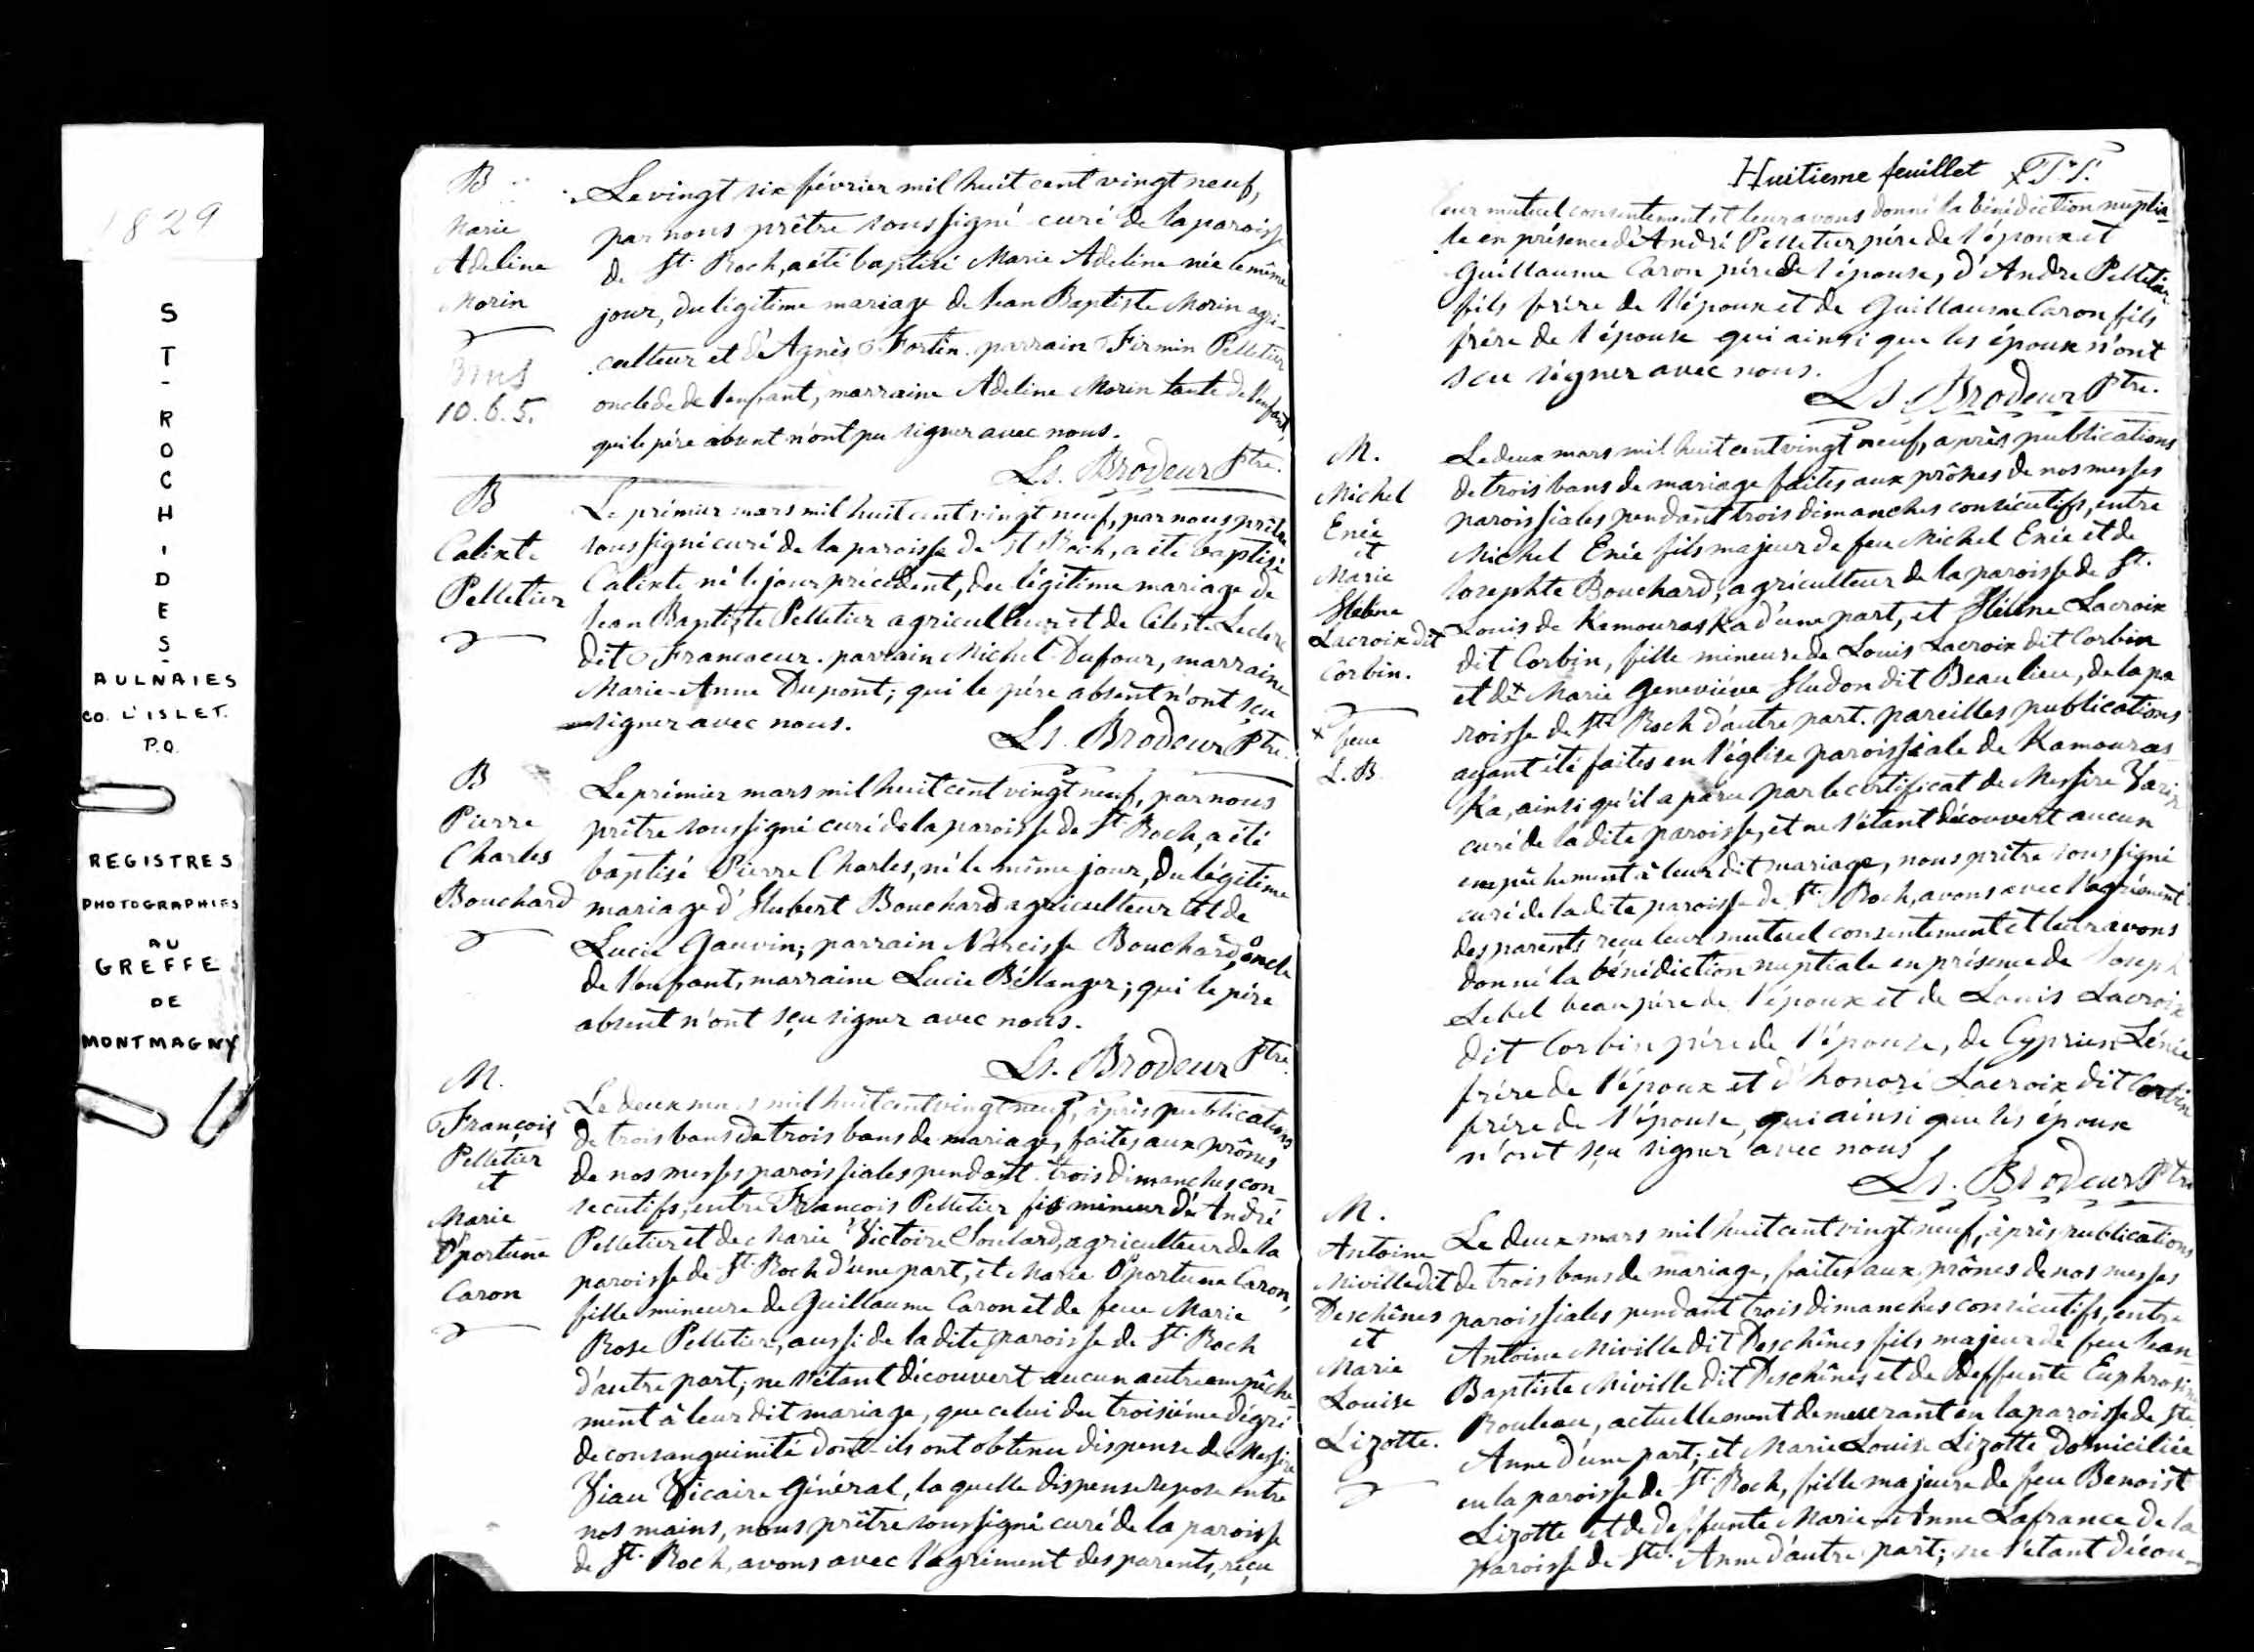 1829
ST-ROCH-DES-
AULNAIES
CO. L'ISLET.
P.Q.
REGISTRES
PHOTOGRAPHIES
AU
GREFFE
DE
MONTMAGNY
B
Marie
Adeline
Morin
3 ms
10.6.5.
Le vingt six février mil huit cent vingt neuf,
par nous prêtre soussigné curé de la paroisse
de St. Roch, a été baptisé Marie Adeline née le même
jour, du légitime mariage de Jean Baptiste Morin agri-
culteur et d'Agnès Fortin. parrain Firmin Pelletier
oncle de de l'enfant, marraine Adeline Morin tante de l'enfant,
qui le pére absent n'ont pu signer avec nous.
Ls. Brodeur Ptre.
B
Calixte
Pelletier
Le prémier mars mil huit cent vingt neuf, par nous prêtre
soussigné curé de la paroisse de St Roch, a été baptisé
Calixte né le jour précédent, du légitime mariage de
Jean Baptiste Pelletier agriculteur et de Céleste Leclerc
dit Francoeur. parrain Michel Dufour, marraine
Marie-Anne Dupont; qui le pére absent n'ont sçu
signer avec nous.
Ls. Brodeur Ptre.
B
Pierre
Charles
Bouchard
Le prémier mars mil huit cent vingt neuf, par nous
prêtre soussigné curé de la paroisse de St. Roch, a été
baptisé Pierre Charles, né le même jour, du légitime
mariage d'Hubert Bouchard agriculteur et de
Lucie Gauvin; parrain Narcisse Bouchard, oncle
de l'enfant, marraine Lucie Bélanger; qui le pére
absent n'ont sçu signer avec nous.
Ls. Brodeur Ptre.
M.
François
Pelletier
et
Marie
Oportune
Caron
Le deux mars mil huit cent vingt neuf, après publications
de trois bans de trois bans de mariage, faites aux prônes
de nos messes paroissiales pendant trois dimanches con-
secutifs, entre François Pelletier fis mineur d'André
Pelletier et de Marie Victoire Soulard, agriculteur de la
paroisse de St. Roch d'une part, et Marie Oportune Caron,
fille mineure de Guillaume Caron et de feue Marie
Rose Pelletier, aussi de la dite paroisse de St. Roch
d'autre part; ne s'étant découvert aucun autre empêche-
ment à leur dit mariage, que celui du troisiéme dégré
de consanguinité dont ils ont obtenu dispense de Messire
Viau Vicaire Général, laquelle dispense repose entre
nos mains, nous prêtre soussigné curé de la paroisse
de St. Roch, avons avec l'agriment des parents, reçu
Huitieme feuillet
leur mutuel consentement et leur avons donné la bénédiction nuptia-
le en présence d'André Pelletier pére de l'époux et
Guillaume Caron pére de l'épouse, d'André Pelletier
fils frére de l'époux et de Guillaume Caron fils
frére de l'épouse qui ainsi que les époux n'ont
sçu signer avec nous.
Ls Brodeur Ptre.
M.
Michel
Enée
et
Marie
Héléne
Lacroix dit
Corbin.
x feue
L. B
Le deux mars mil huit cent vingt neuf, après publications
de trois bans de mariage faites aux prônes de nos messes
paroissiales pendant trois dimanches consécutifs, entre
Michel Enée fils majeur de feu Michel Enée et de
Josephte Bouchard, agriculteur de la paroisse de St.
Louis de Kamouraska d'une part, et Héléne Lacroix
dit Corbin, fille mineure de Louis Lacroix dit Corbin
et de x Marie Geneviéve Hudon dit Beaulieu, de la pa
roisse de St. Roch d'autre part. pareilles publications
ayant été faites en l'église paroissiale de Kamouras-
Ka, ainsi qu'il a paru par le certificat de Messire Varin
curé de la dite paroisse, et ne s'étant découvert aucun
empêchement à leur dit mariage, nous prêtre soussigné
curé de la dite paroisse de St. Roch, avons avec l'agriement
des parents reçu leur mutuel consentement et leur avons
donné la bénédiction nuptiale en présence de Joseph
Lebel beau pére de l'époux et de Louis Lacroix
dit Corbin pére de l'épouse, de Cyprien Lénée
frére de l'époux et d'honoré Lacroix dit Corbin
frére de l'épouse, qui ainsi que les époux
n'ont sçu signer avec nous
Ls. Brodeur Ptre
M.
Antoine
Miville dit
Deschênes
et
Marie
Louise
Lizotte.
Le deux mars mil huit cent vingt neuf, après publications
de trois bans de mariage, faites aux prônes de nos messes
paroissiales pendant trois dimanches consécutifs, entre
Antoine Miville dit Deschênes fils majeur de feu Jean-
Baptiste Miville dit Deschênes et de deffunte Euphrosine
Rouleau, actuellement demeurant en la paroisse de Ste.
Anne d'une part; et Marie Louise Lizotte domiciliée
en la paroisse de St. Roch, fille majeure de feu Benoist
Lizotte et de deffunte Marie-Anne Lafrance de la
paroisse de Ste. Anne d'autre part; ne s'étant décou-